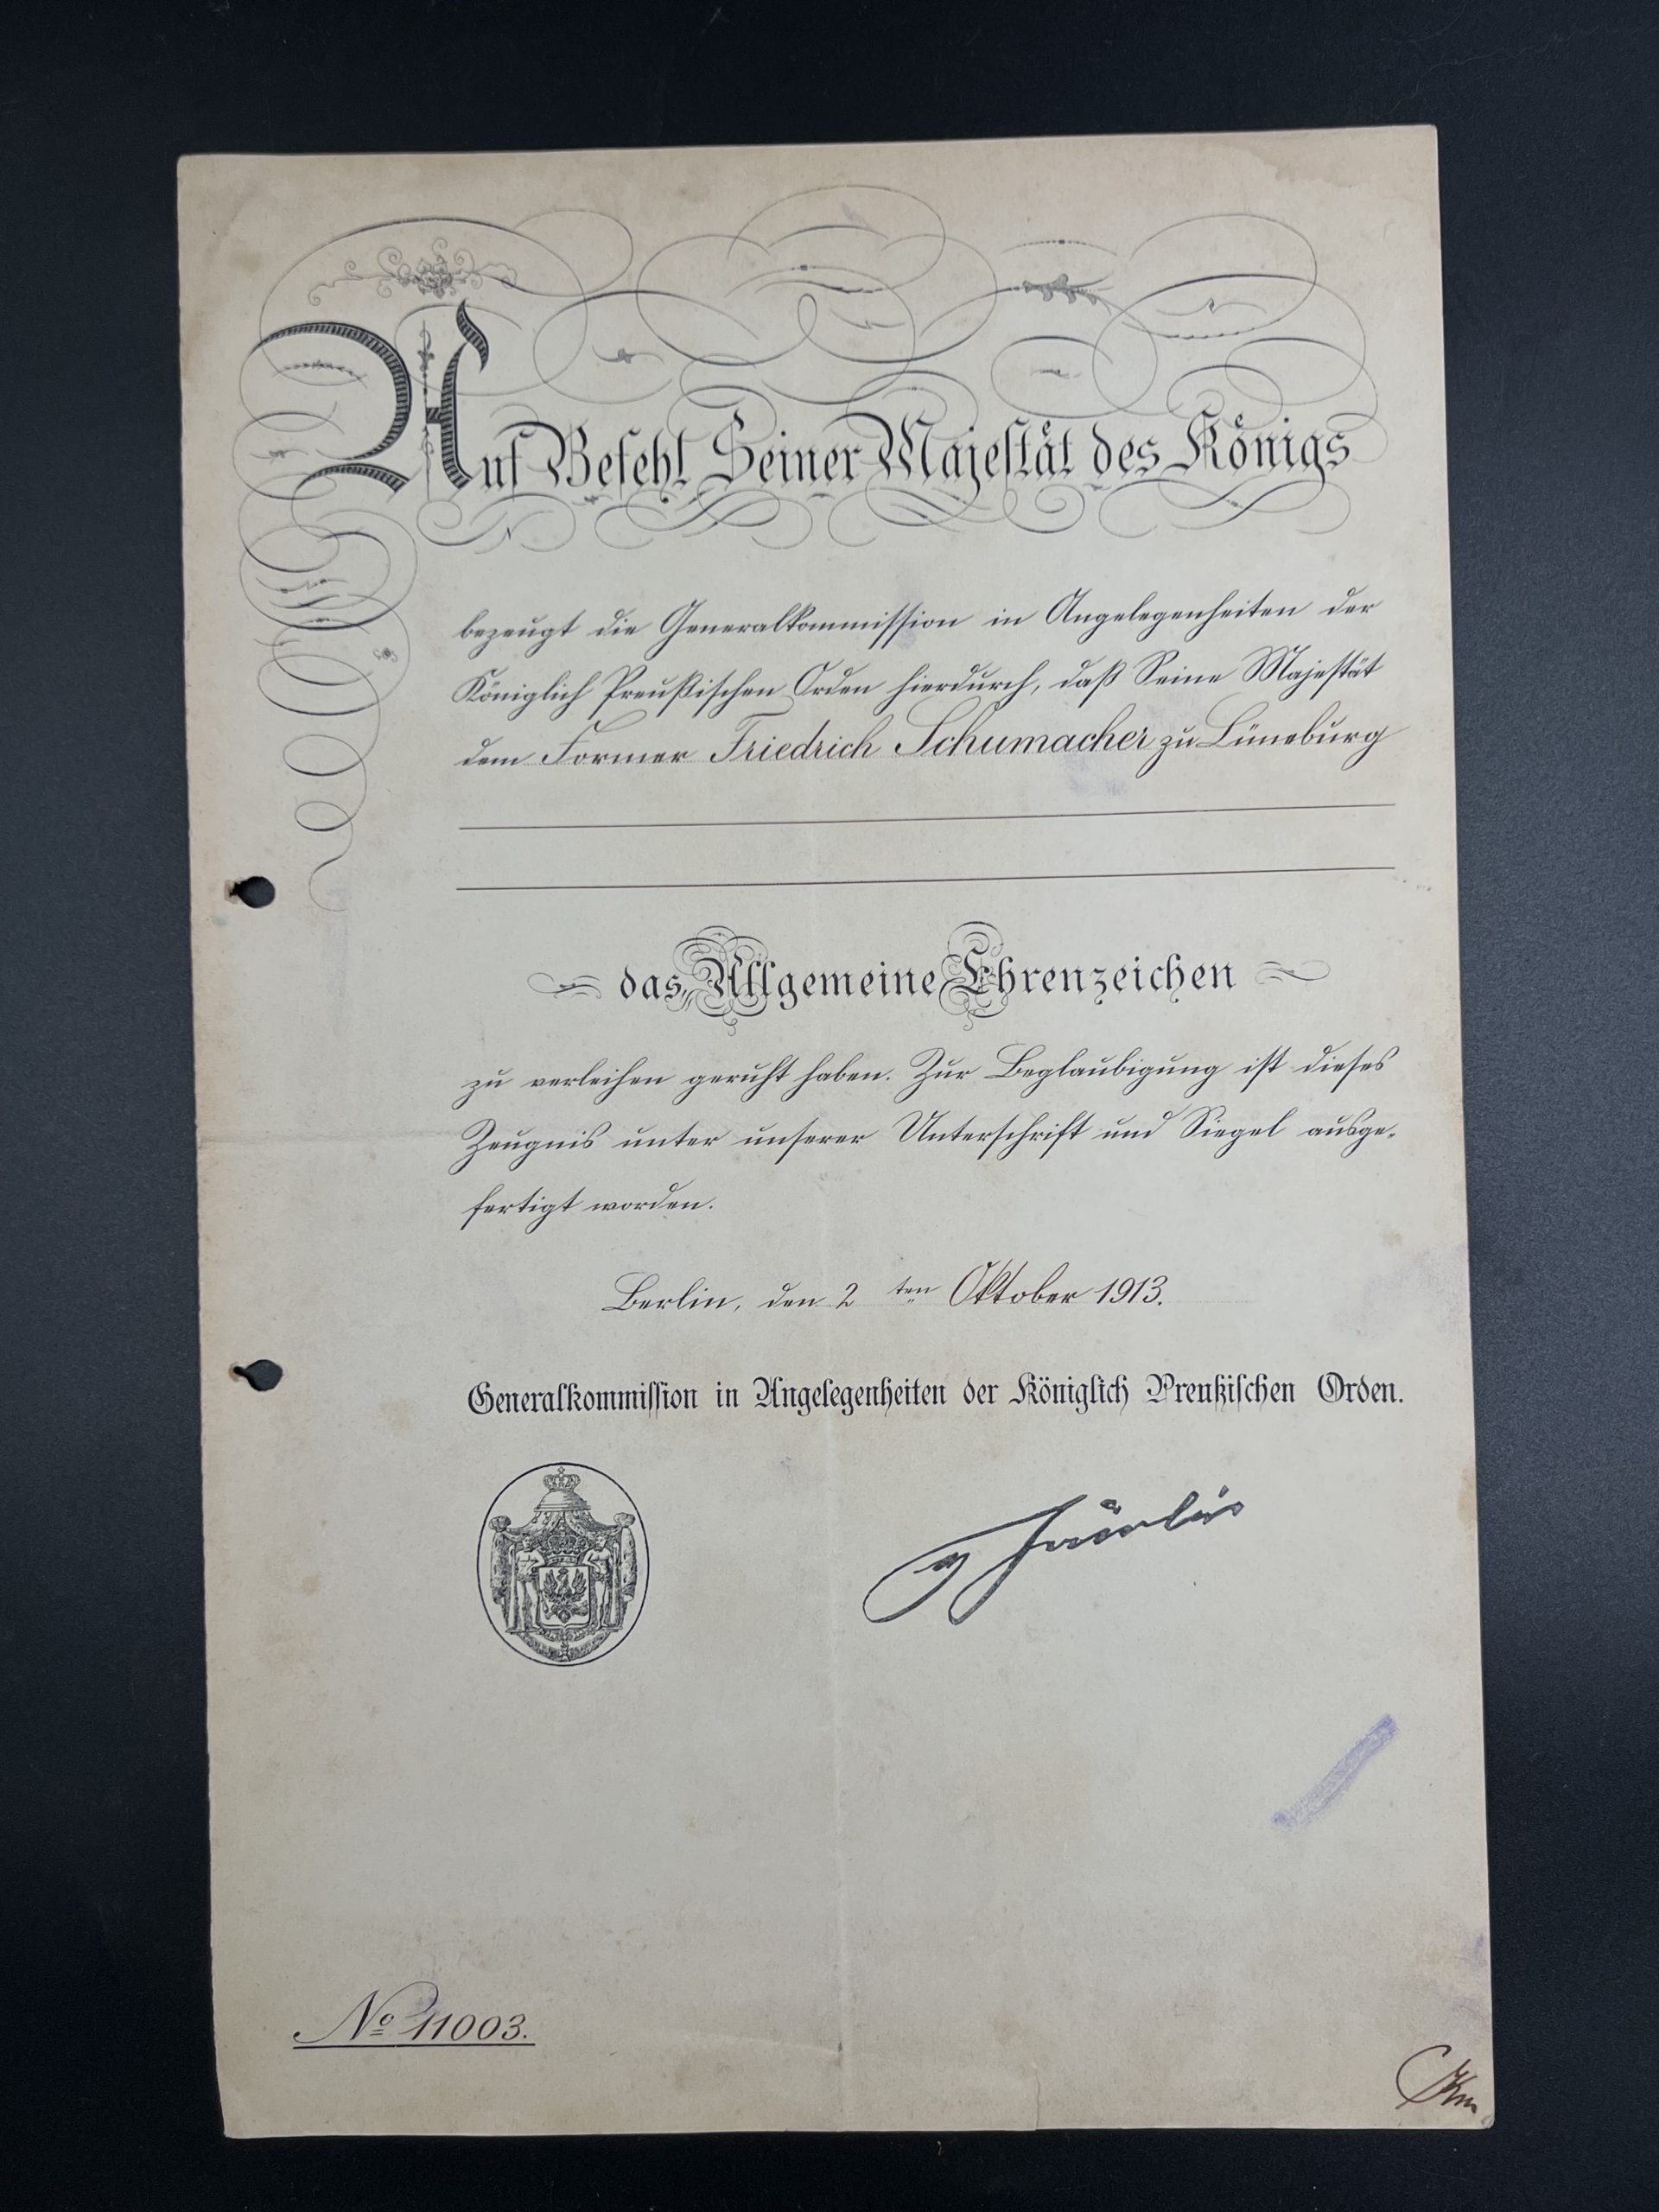 Auf Befehl Seiner Majestät des Königs
bezeugt die Generalkommission in Angelegenheiten der
Königlich Preußischen Orden hierdurch, daß Seine Majestät
dem Former Friedrich Schumacher zu Lüneburg
das Allgemeine Ehrenzeichen
zu verleihen geruht haben. Zur Beglaubigung ist dieses
Zeugnis unter unserer Unterschrift und Siegel ausge-
fertigt worden.
Berlin, den 2 ten Oktober 1913.
Generalkommission in Angelegenheiten der Königlich Preußischen Orden.
No 11003.